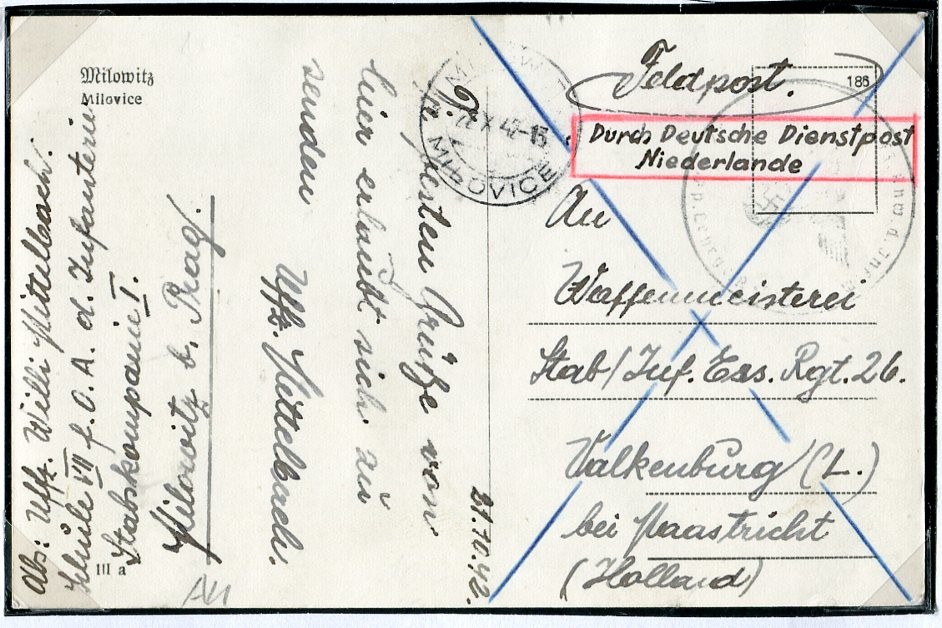 Milowitz
Milovice
Abs: Uffz. Willi Mittelbach.
Schule VII f. O. A. d. Infanterie
Stabskompanie I.
Milowitz b. Prag.
III a
Die besten Grüße von
hier erlaubt sich zu
senden
Uffz. Mittelbach.
21.10.42.
MILOVICE
X 42-15
Feldpost.
186
Durch Deutsche Dienstpost
Niederlande
An
Waffenmeisterei
Stab/Inf. Ers. Rgt. 26.
Valkenburg (L.)
bei Maastricht
(Holland)